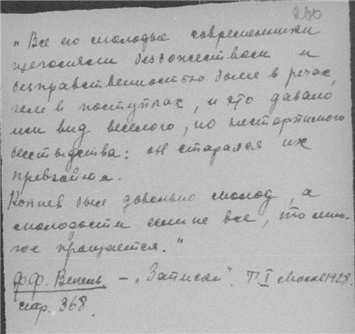 280
"Все его молодые современники
щеголяли безбожеством и
безнравственностью более в речах,
чем в поступках, и это давало
им вид веселого, но нестерпимого
бесстыдства: он старался их
превзойти.
Копиев был довольно молод, а
молодости если не все, то мно-
гое прощается."
Ф.Ф. Вигель – "Записки". Т. I Москва 1928.
стр. 368.